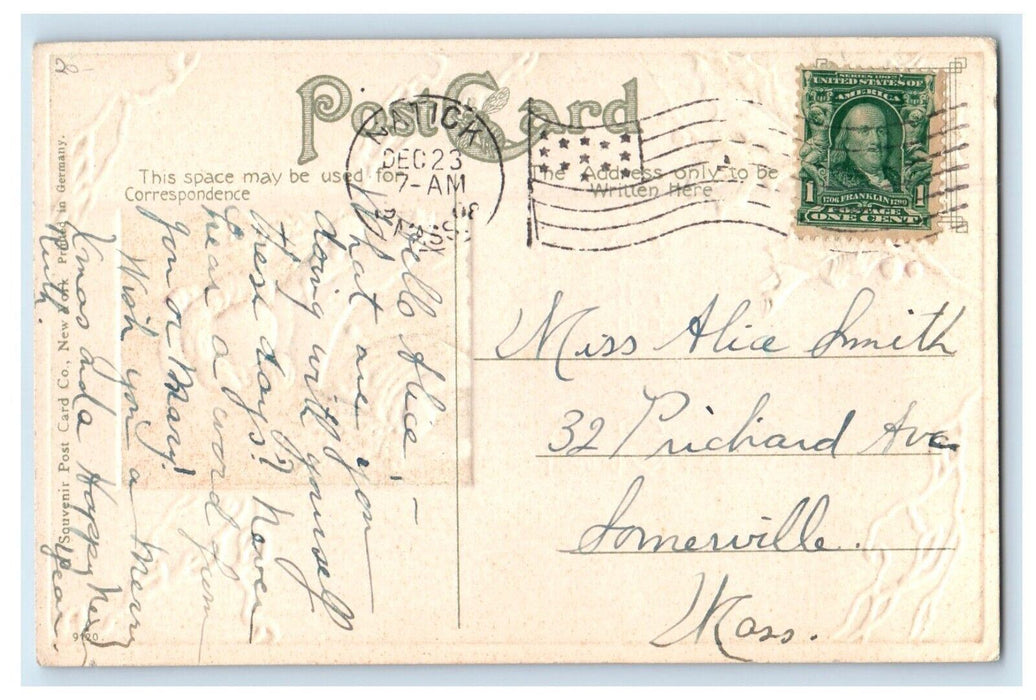 Post Card
This space may be used for
Correspondence
The Address only to be
Written Here
NATICK
DEC 23
7-AM
08
MASS.
SERIES 1902
UNITED STATES OF
AMERICA
1706 FRANKLIN 1790
1 POSTAGE 1
ONE CENT
Hello Alice, —
What are you
doing with yourself
these days? Never
hear a word from
you or Mary!
Wish you a Merry
Xmas and a Happy New
Year.
Ruth.
Miss Alice Smith
32 Prichard Ave
Somerville.
Mass.
Souvenir Post Card Co., New York Printed in Germany.
9120